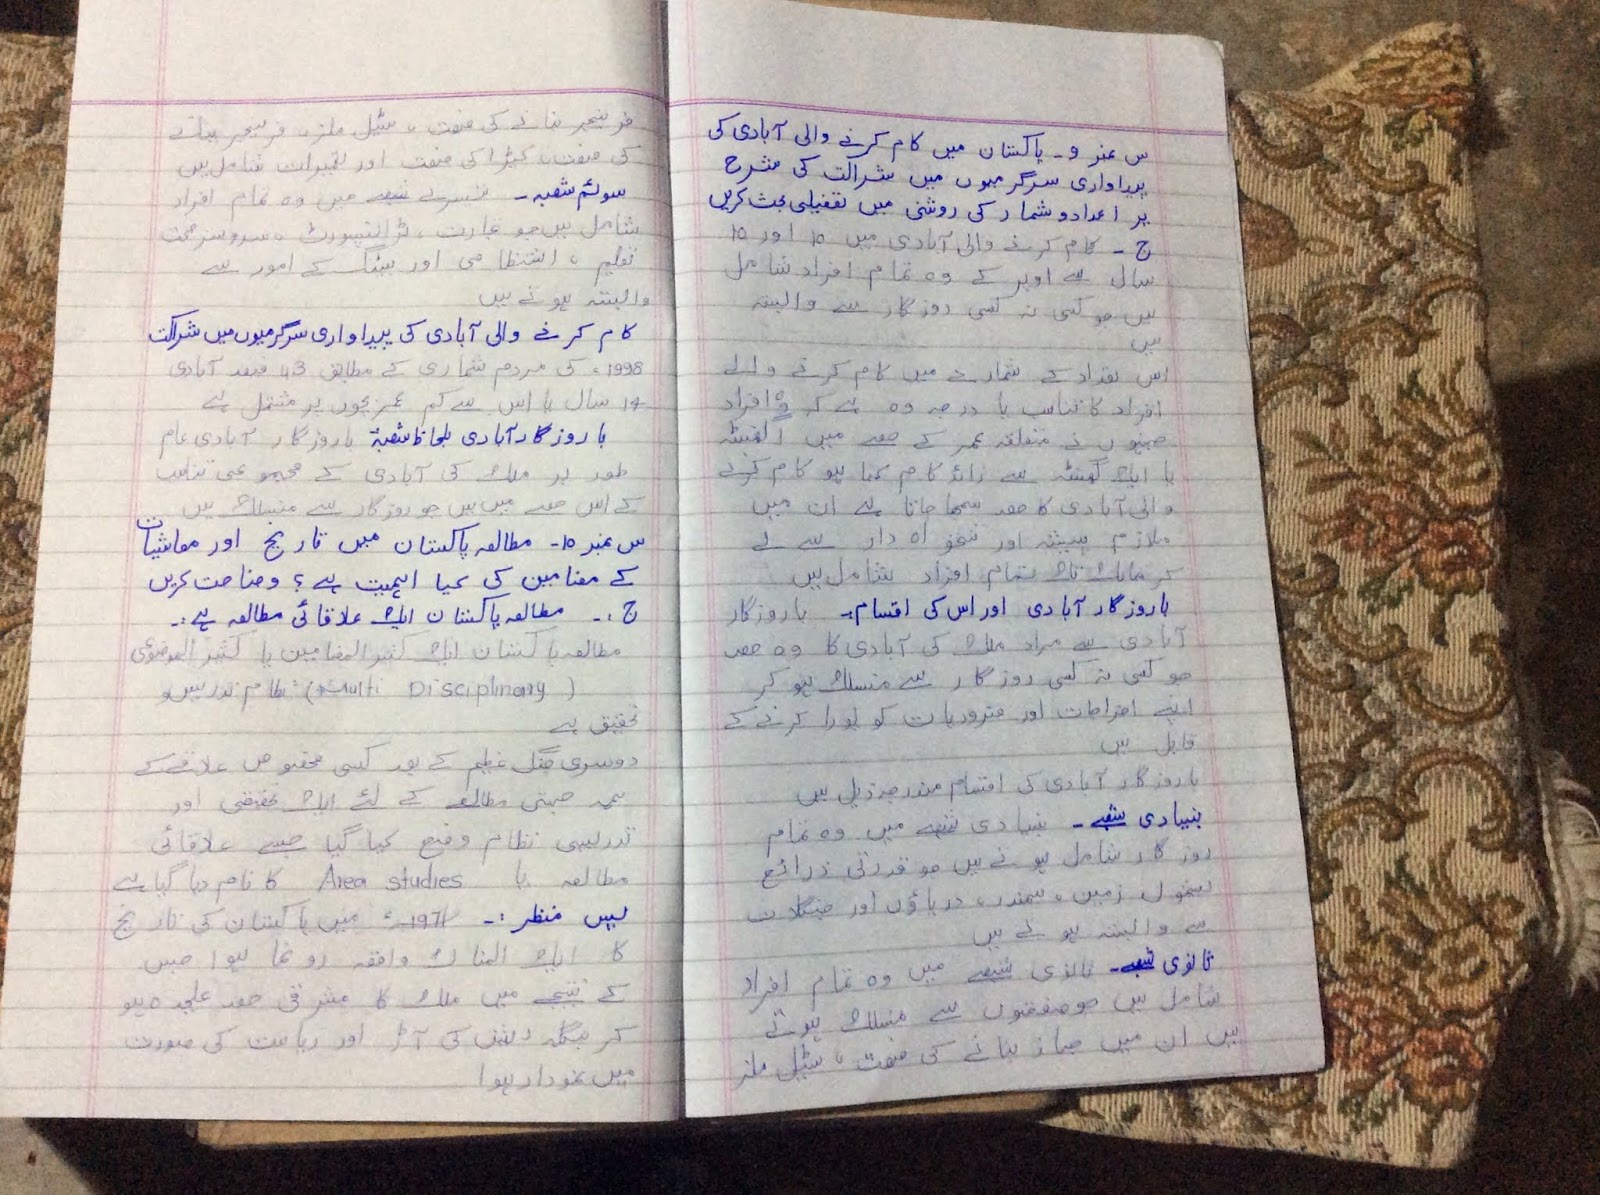 س نمبر 9۔ پاکستان میں کام کرنے والی آبادی کی
پیداواری سرگرمیوں میں شراکت کی شرح
پر اعدادوشمار کی روشنی میں تفصیلی بحث کریں
ج۔ کام کرنے والی آبادی میں 10 اور 10
سال سے اوپر کے وہ تمام افراد شامل
ہیں جو کسی نہ کسی روزگار سے وابستہ
ہیں
اس تعداد کے شمارے میں کام کرنے والے
افراد کا تناسب یا درجہ وہ ہے کہ وہ افراد
جنہوں نے متعلقہ عمر کے حصے میں 1 گھنٹہ
یا ایک گھنٹہ سے زائد کام کیا ہو کام کرنے
والی آبادی کا حصہ سمجھا جاتا ہے ان میں
ملازم پیشہ اور تنخواہ دار سے لے
کر مالک تک تمام افراد شامل ہیں
باروزگار آبادی اور اس کی اقسام:۔ باروزگار
آبادی سے مراد ملک کی آبادی کا وہ حصہ
جو کسی نہ کسی روزگار سے منسلک ہو کر
اپنے اخراجات اور ضروریات کو پورا کرنے کے
قابل ہیں
باروزگار آبادی کی اقسام مندرجہ ذیل ہیں
بنیادی شعبے۔ بنیادی شعبے میں وہ تمام
روزگار شامل ہوتے ہیں جو قدرتی ذرائع
بشمول زمین، سمندر، دریاؤں اور جنگلات
سے وابستہ ہوتے ہیں
ثانوی شعبے۔ ثانوی شعبے میں وہ تمام افراد
شامل ہیں جو صنعتوں سے منسلک ہوتے
ہیں ان میں جہاز بنانے کی صنعت، سٹیل ملز
فرنیچر بنانے کی صنعت، سٹیل ملز، فرنیچر بنانے
کی صنعت، کپڑا کی صنعت اور تعمیرات شامل ہیں
سوئم شعبہ۔ تیسرے شعبے میں وہ تمام افراد
شامل ہیں جو تجارت، ٹرانسپورٹ، سروسز صحت
تعلیم، انتظامی اور بینکنگ کے امور سے
وابستہ ہوتے ہیں
کام کرنے والی آبادی کی پیداواری سرگرمیوں میں شراکت
1998ء کی مردم شماری کے مطابق 43 فیصد آبادی
14 سال یا اس سے کم عمر بچوں پر مشتمل ہے
باروزگار آبادی بلحاظ شعبہ باروزگار آبادی عام
طور پر ملک کی آبادی کے مجموعی تناسب
کے اس حصے میں ہیں جو روزگار سے منسلک ہیں
س نمبر 10۔ مطالعہ پاکستان میں تاریخ اور معاشیات
کے مضامین کی کیا اہمیت ہے؟ وضاحت کریں
ج:۔ مطالعہ پاکستان ایک علاقائی مطالعہ ہے:۔
مطالعہ پاکستان ایک کثیر المضامین یا کثیر الموضوعی
(Multi Disciplinary) نظام تدریس و
تحقیق ہے
دوسری جنگ عظیم کے بعد کسی مخصوص علاقے کے
ہمہ جہتی مطالعے کے لئے ایک تحقیقی اور
تدریسی نظام وضع کیا گیا جسے علاقائی
مطالعہ یا Area studies کا نام دیا گیا ہے
پس منظر:۔ 1971ء میں پاکستان کی تاریخ
کا ایک المناک واقعہ رونما ہوا جس
کے نتیجے میں ملک کا مشرقی حصہ علیحدہ ہو
کر بنگلہ دیش کی آڑ اور ریاست کی صورت
میں نمودار ہوا